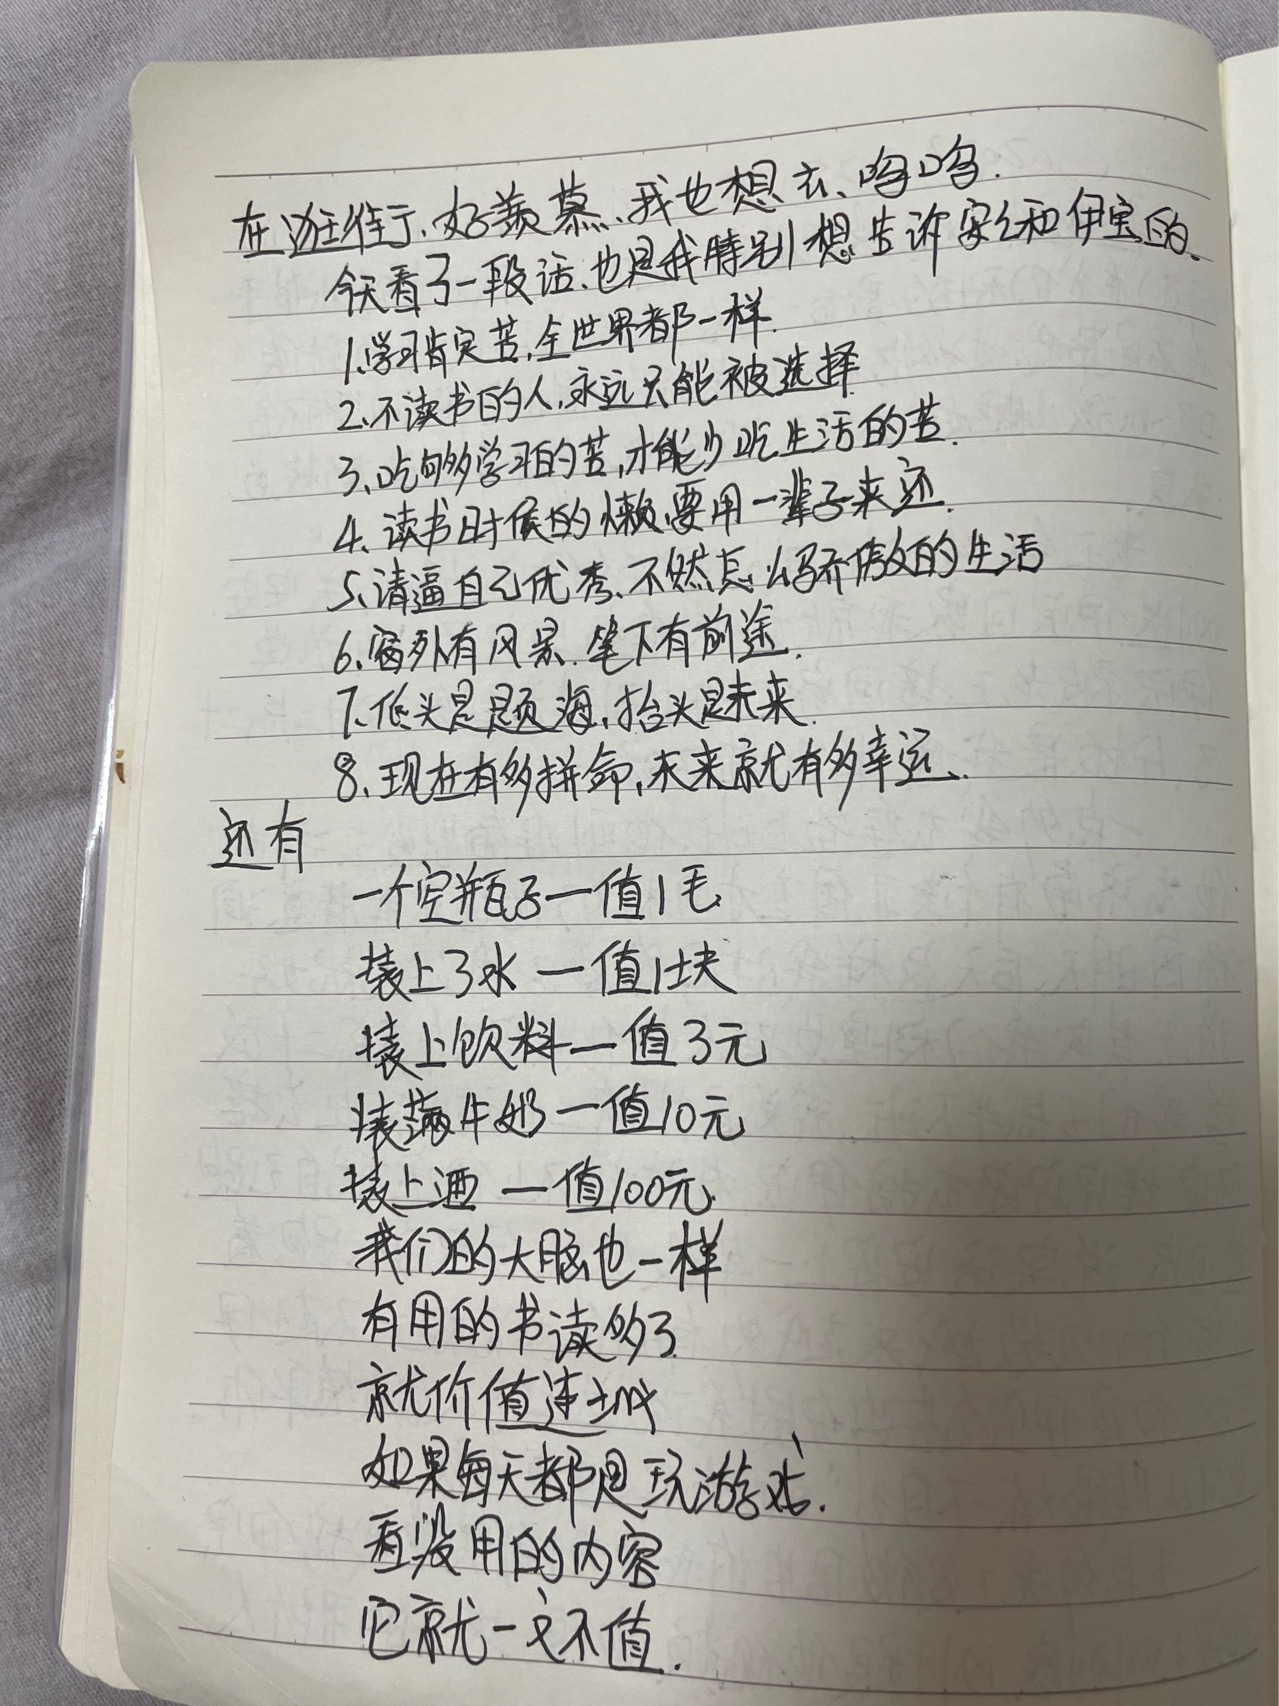 在逛街了、好羡慕、我也想去、呜呜.
今天看了一段话、也是我特别想告诉安安和伊宝的.
1.学习肯定苦,全世界都一样.
2.不读书的人,永远只能被选择
3、吃够多学习的苦,才能少吃生活的苦.
4、读书时候的懒,要用一辈子来还.
5、请逼自己优秀、不然怎么骄傲的生活
6.窗外有风景.笔下有前途.
7.低头是题海,抬头是未来.
8、现在有多拼命,未来就有多幸运.
还有
一个空瓶子一值1毛
装上了水一值1块
装上饮料一值3元
装满牛奶一值10元
装上酒一值100元
我们的大脑也一样
有用的书读多了
就价值连城
如果每天都是玩游戏.
看没用的内容
它就一文不值.